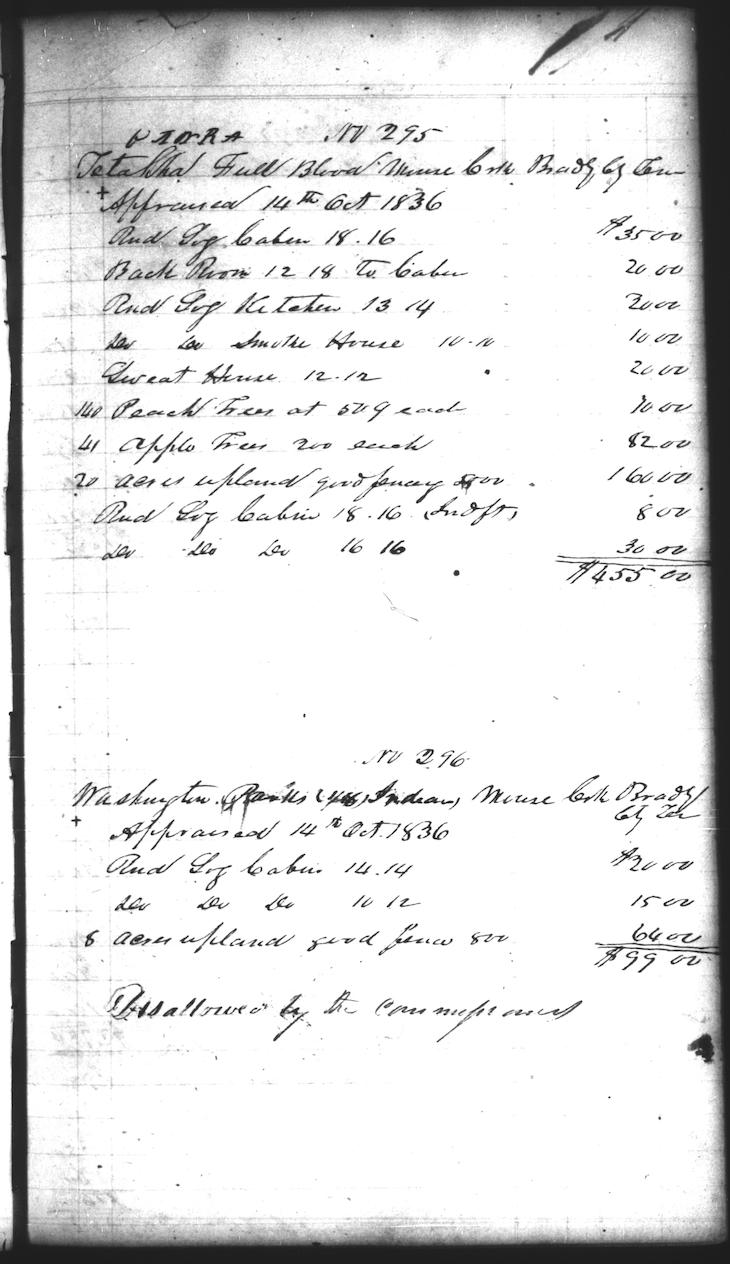 No 295
Full Blood Mouse Crk Bradly Cty Ten
+ Appraised 14th Oct 1836
Rnd Log Cabin 18.16 $35 00
Back Room 12 18 to Cabin 20 00
Rnd Log Kitchen 13 14 20 00
Do Do Smoke House 10.10 10 00
Sweat House 12.12 20 00
140 Peach Trees at 50 each 70 00
41 Apple Trees 200 each 82 00
20 acres upland good fencing 800 160 00
Rnd Log Cabin 18.16 8 00
Do Do Do 16 16 30 00
$455 00
No 296
Washington Indian, Mouse Crk Bradly
Cty Ten
+ Appraised 14th Oct. 1836
Rnd Log Cabin 14.14 $20 00
Do Do Do 10 12 15 00
8 acres upland good fence 800 64 00
$99 00
Disallowed by the Commissioners